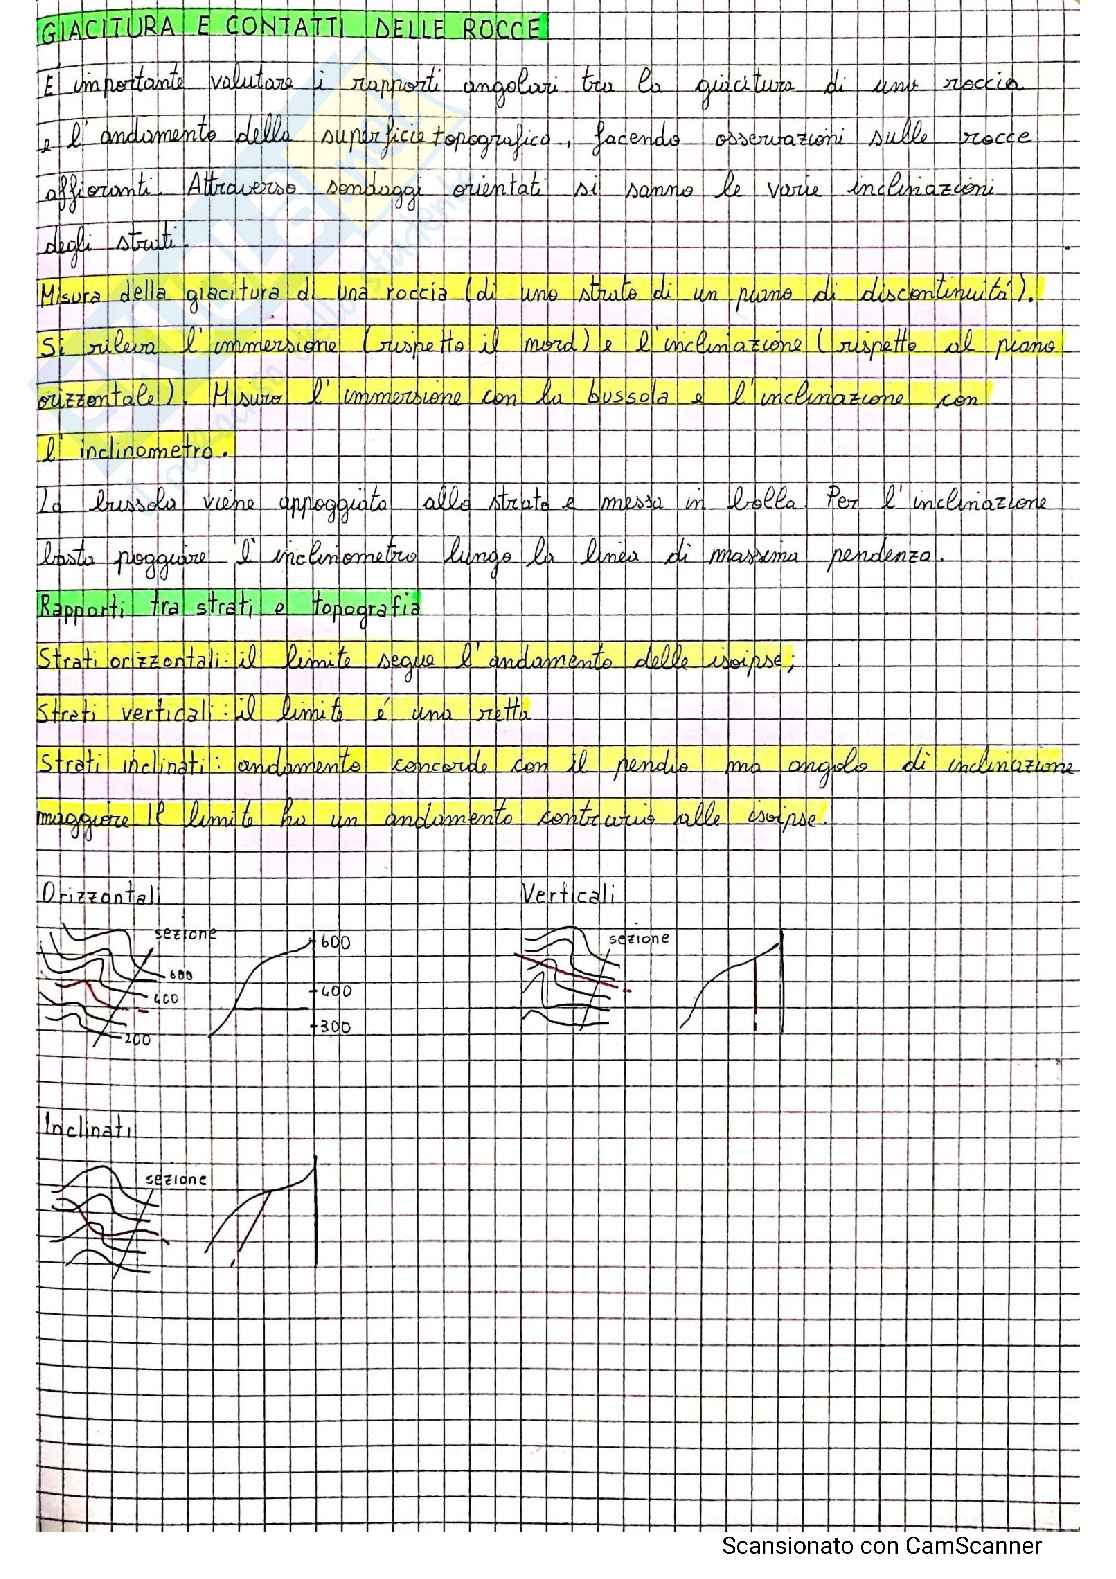 GIACITURA E CONTATTI DELLE ROCCE
È importante valutare i rapporti angolari tra la giacitura di una roccia
e l'andamento della superficie topografica, facendo osservazioni sulle rocce
affioranti. Attraverso sondaggi orientati si sanno le varie inclinazioni
degli strati.
Misura della giacitura di una roccia (di uno strato di un piano di discontinuità).
Si rileva l'immersione (rispetto il nord) e l'inclinazione (rispetto al piano
orizzontale). Misuro l'immersione con la bussola e l'inclinazione con
l'inclinometro.
La bussola viene appoggiata allo strato e messa in bolla. Per l'inclinazione
basta poggiare l'inclinometro lungo la linea di massima pendenza.
Rapporti tra strati e topografia
Strati orizzontali: il limite segue l'andamento delle isoipse;
Strati verticali: il limite é una retta
Strati inclinati: andamento concorde con il pendio ma angolo di inclinazione
maggiore Il limite ha un andamento contrario alle isoipse.
Orizzontali Verticali
sezione 600 sezione
600
400 400
300
200
Inclinati
sezione
Scansionato con CamScanner